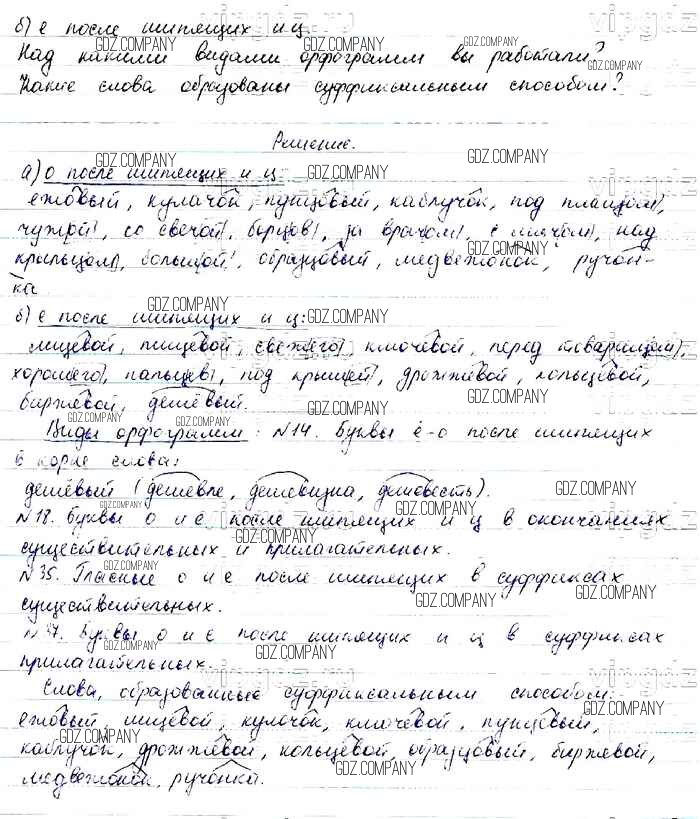 б) е после шипящих и ц.
Над какими видами орфограмм вы работали?
Какие слова образованы суффиксальным способом?
Решение.
а) о после шипящих и ц:
ежовый, кулачок, пунцовый, каблучок, под плащом,
чужой, со свечой, борцов, за врачом, с мячом, над
крыльцом, большой, образцовый, медвежонок, ручон-
ка.
б) е после шипящих и ц:
лицевой, пищевой, свежего, ключевой, перед товарищем,
хорошего, пальцев, под крышей, дрожжевой, кольцевой,
биржевой, дешёвый.
Виды орфограмм: №14. Буквы ё-о после шипящих
в корне слова:
дешёвый (дешевле, дешевизна, дешевесть).
№18. Буквы о и е после шипящих и ц в окончаниях
существительных и прилагательных.
№35. Гласные о и е после шипящих в суффиксах
существительных.
Буквы о и е после шипящих и ц в суффиксах
прилагательных.
Слова, образованные суффиксальным способом:
ежовый, лицевой, кулочок, ключевой, пунцовый,
каблучок, дрожжевой, кольцевой, образцовый, биржевой,
медвежонок, ручонка.